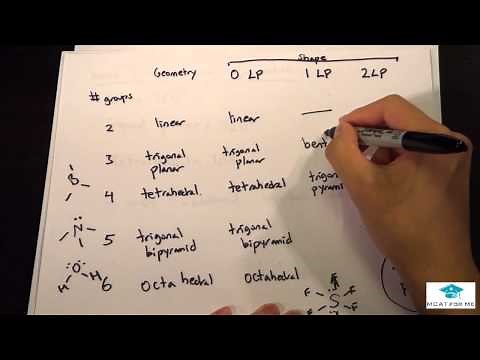 Shape
Geometry 0 LP 1 LP 2 LP
# groups
2 linear linear —
3 trigonal planar trigonal planar bent
B
4 tetrahedral tetrahedral trigonal
N
5 trigonal bipyramid trigonal bipyramid
O
H H 6 octahedral octahedral
F F
S
F F
MCAT FOR ME